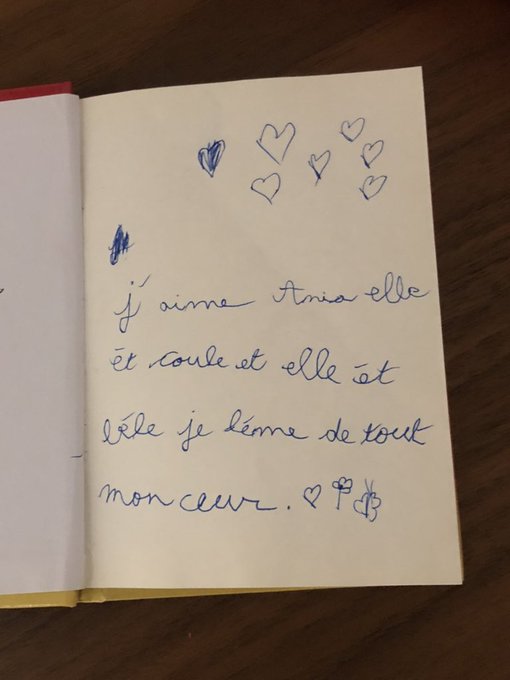 j'aime Ania elle
ét coule et elle ét
bèle je l'éme de tout
mon cœur.